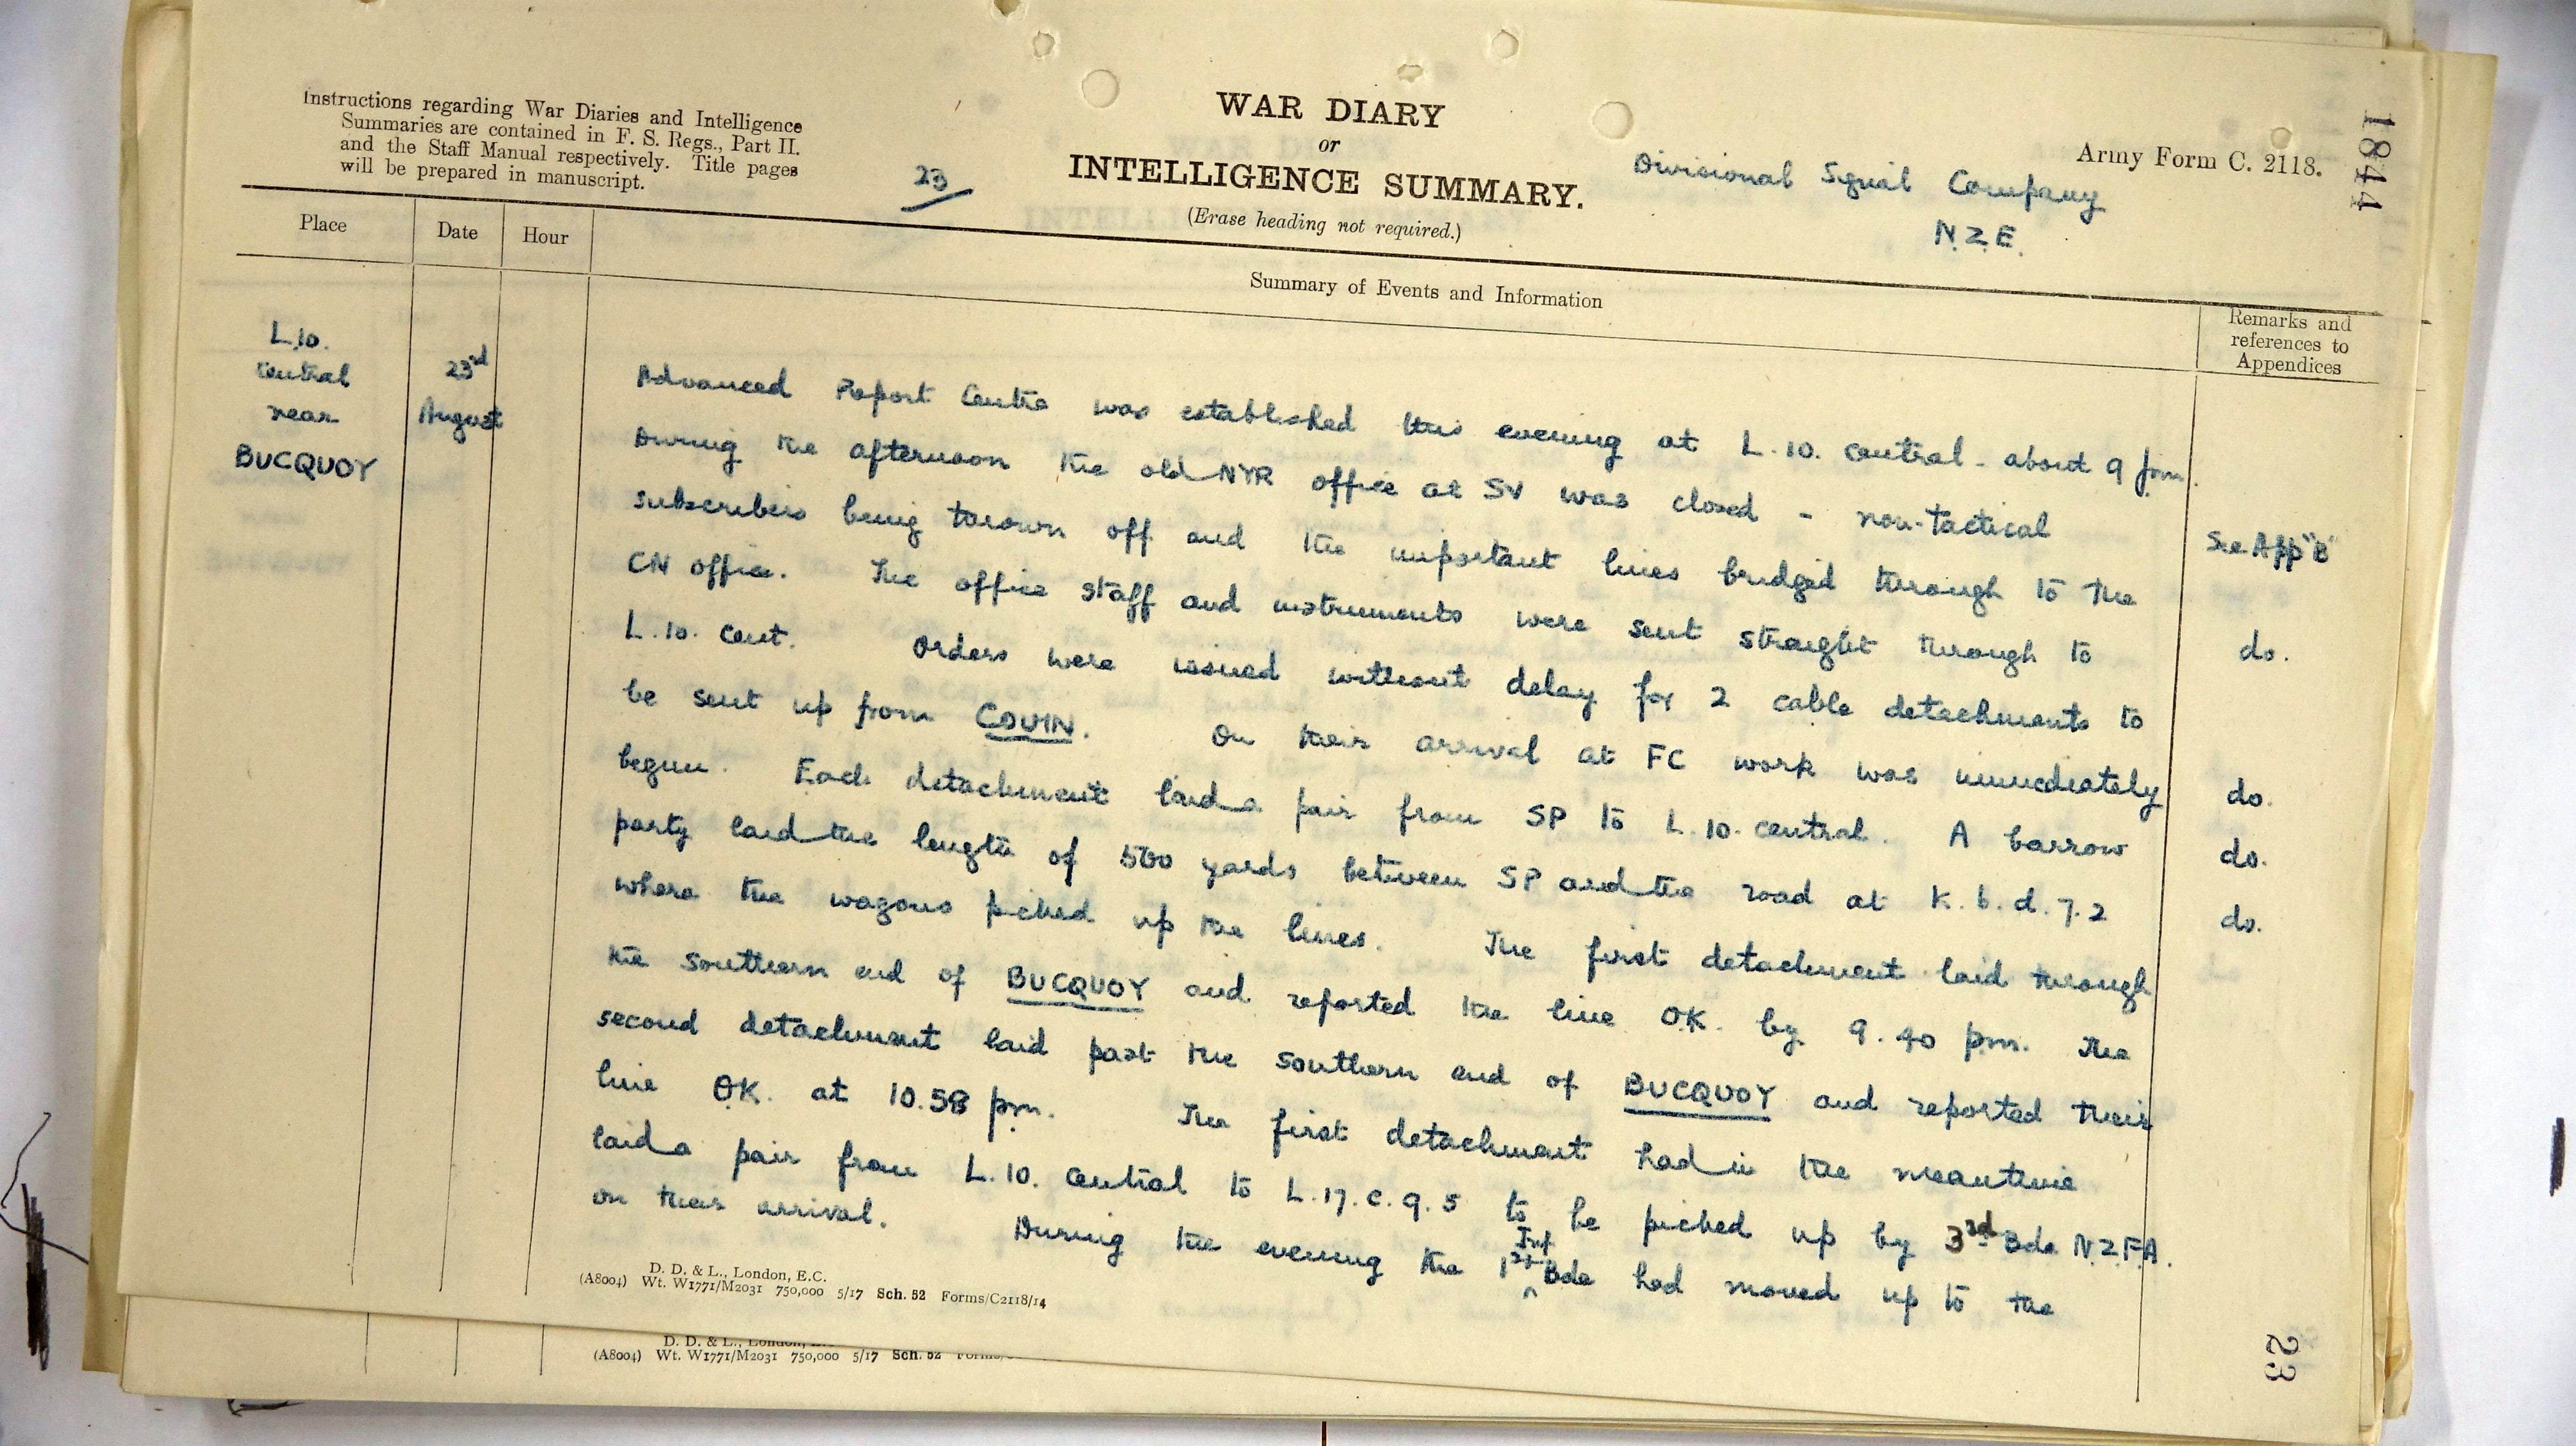 Instructions regarding War Diaries and Intelligence
Summaries are contained in F. S. Regs., Part II.
and the Staff Manual respectively. Title pages
will be prepared in manuscript.
23
WAR DIARY
or
INTELLIGENCE SUMMARY.
(Erase heading not required.)
Divisional Signal Company
N.Z.E.
Army Form C. 2118.
1844
Place
Date
Hour
Summary of Events and Information
Remarks and
references to
Appendices
L.10.
central
near
BUCQUOY
23rd
August
Advanced Report Centre was established this evening at L.10. central - about 9 pm.
During the afternoon the old NYR office at SV was closed - non-tactical
subscribers being thrown off and the important lines bridged through to the
CN office. The office staff and instruments were sent straight through to
L.10. cent. Orders were issued without delay for 2 cable detachments to
be sent up from COUIN. On their arrival at FC work was immediately
begun. Each detachment laid a pair from SP to L.10. central. A barrow
party laid the length of 500 yards between SP and the road at K.6.d.7.2
where the wagons picked up the lines. The first detachment laid through
the southern end of BUCQUOY and reported the line OK. by 9.40 pm. The
second detachment laid past the southern end of BUCQUOY and reported their
line OK. at 10.58 pm. The first detachment had in the meantime
laid a pair from L.10. central to L.17.c.9.5 to be picked up by 3rd Bde N.Z.F.A.
on their arrival. During the evening the 1st Inf Bde had moved up to the
See App "B"
do.
do.
do.
do.
D. D. & L., London, E.C.
(A8004) Wt. W1771/M2031 750,000 5/17 Sch. 52 Forms/C2118/14
23
D. D. & L., London,
(A8004) Wt. W1771/M2031 750,000 5/17 Sch. 52